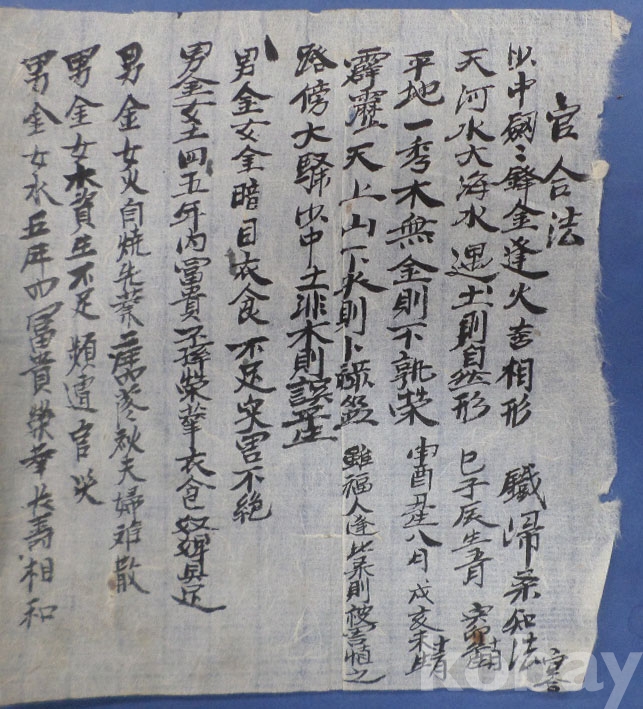 官合法
沙中劍鋒金逢火喜相形 鐵帚 知法
天河水大海水遇土則自然形 巳子辰生五月
平地一秀木無金則不孰榮 申酉丑産八月戌亥未
霹靂天上山下火則 祿盤 雖福人逢此 則被害愼之
路傍大驛沙中土非木則誤平生
男金女金暗目衣食不足灾害不絶
男金女土四五年內富貴子孫榮華衣食奴婢具足
男金女火自燒先榮 夫婦难散
男金女水資生不足頻遭官災
男金女水五年內富貴榮華長壽相和
kobay